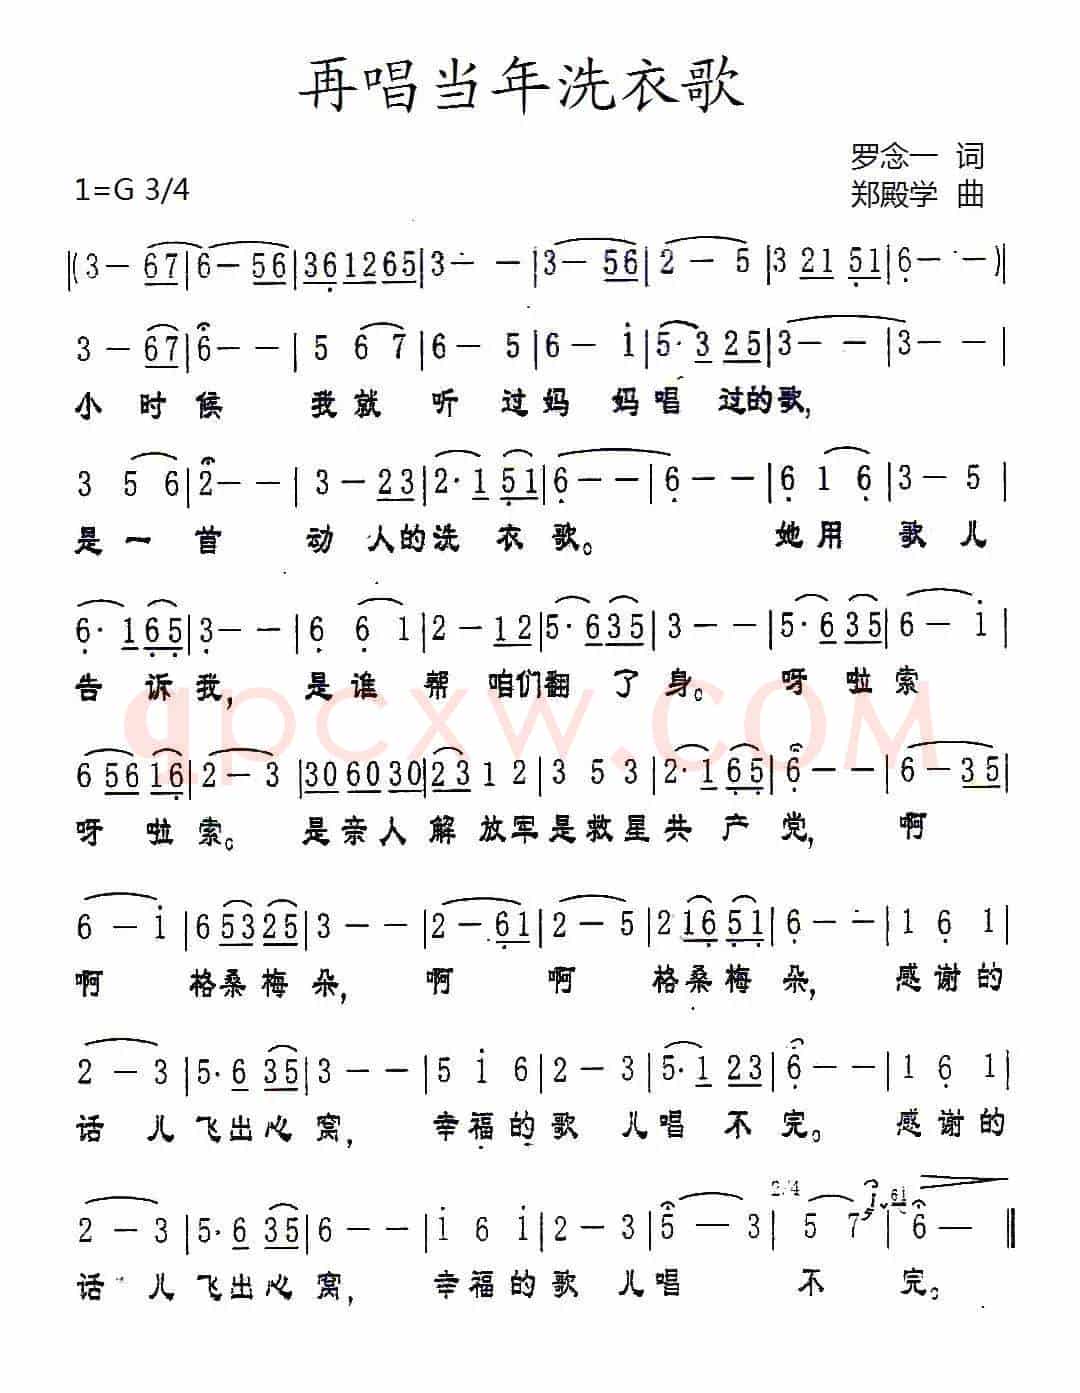 再唱当年洗衣歌
罗念一 词
1=G 3/4
郑殿学 曲
‖(3— 67|6—56|361265|3— —|3—56|2—5|3 21 51|6·— —)|
3—67|6— —|5 6 7|6—5|6—i|5·3 25|3— —|3— —|
小时候 我就听过妈妈唱过的歌,
3 5 6|2— —|3—23|2·1 51|6— —|6— —|6 1 6|3—5|
是一首 动人的洗衣歌。 她用歌儿
6·165|3— —|6 6 1|2—12|5·635|3— —|5·635|6—i|
告诉我, 是谁帮咱们翻了身。 呀啦索
6 56 16|2—3|306030|23 1 2|3 5 3|2·1 65|6— —|6—35|
呀啦索。 是亲人解放军是救星共产党, 啊
6—i|6 53 25|3— —|2—61|2—5|2 16 51|6— —|1 6 1|
啊 格桑梅朵, 啊 啊 格桑梅朵, 感谢的
2—3|5·6 35|3— —|5 i 6|2—3|5·1 23|6— —|1 6 1|
话儿飞出心窝, 幸福的歌儿唱不完。 感谢的
2/4
2—3|5·6 35|6— —|i 6 i|2—3|5—3|5 7 i 61|6—‖
话儿飞出心窝, 幸福的歌儿唱 不 完。
qpcxw.COM